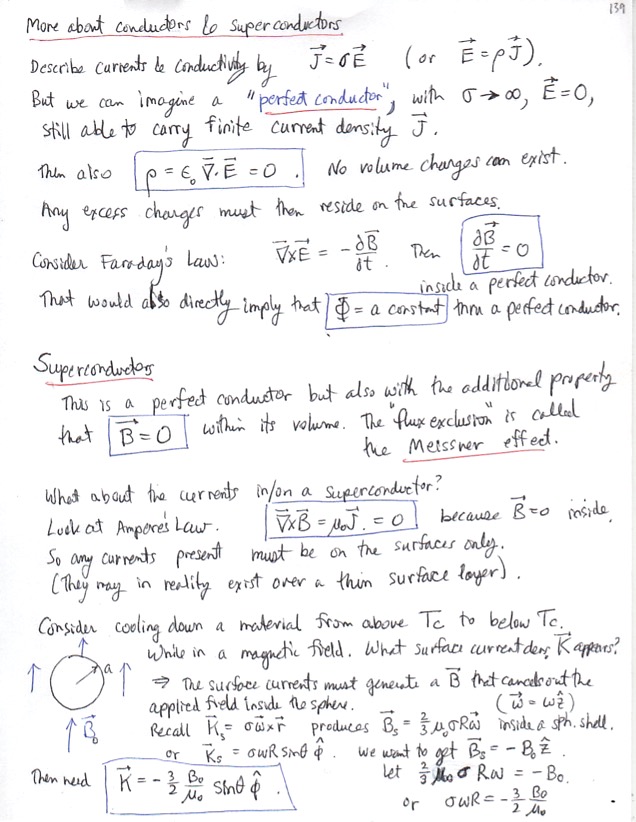 139
More about conductors & superconductors
Describe currents & conductivity by J⃗ = σE⃗ (or E⃗ = ρJ⃗).
But we can imagine a "perfect conductor", with σ → ∞, E⃗ = 0,
still able to carry finite current density J⃗.
Then also ρ = ε₀ ∇⃗·E⃗ = 0. No volume charges can exist.
Any excess charges must then reside on the surfaces.
Consider Faraday's Law: ∇⃗×E⃗ = -∂B⃗/∂t. Then ∂B⃗/∂t = 0
inside a perfect conductor.
That would also directly imply that Φ = a constant thru a perfect conductor.
Superconductors
This is a perfect conductor but also with the additional property
that B⃗ = 0 within its volume. The "flux exclusion" is called
the Meissner effect.
What about the currents in/on a superconductor?
Look at Ampere's Law. ∇⃗×B⃗ = μ₀J⃗ = 0 because B⃗=0 inside.
So any currents present must be on the surfaces only.
(They may in reality exist over a thin surface layer).
Consider cooling down a material from above Tc to below Tc.
While in a magnetic field. What surface current dens. K⃗ appears?
a
B⃗₀
⇒ The surface currents must generate a B⃗ that cancels out the
applied field inside the sphere. (ω⃗ = ωẑ)
Recall K⃗s = σω⃗×r⃗ produces B⃗s = 2/3 μ₀σRω⃗ inside a sph. shell.
or K⃗s = σωR sinθ φ̂. We want to get B⃗s = -B₀ẑ.
Let 2/3 μ₀ σ Rω = -B₀.
Then need K⃗ = -3/2 B₀/μ₀ sinθ φ̂.
or σωR = -3/2 B₀/μ₀